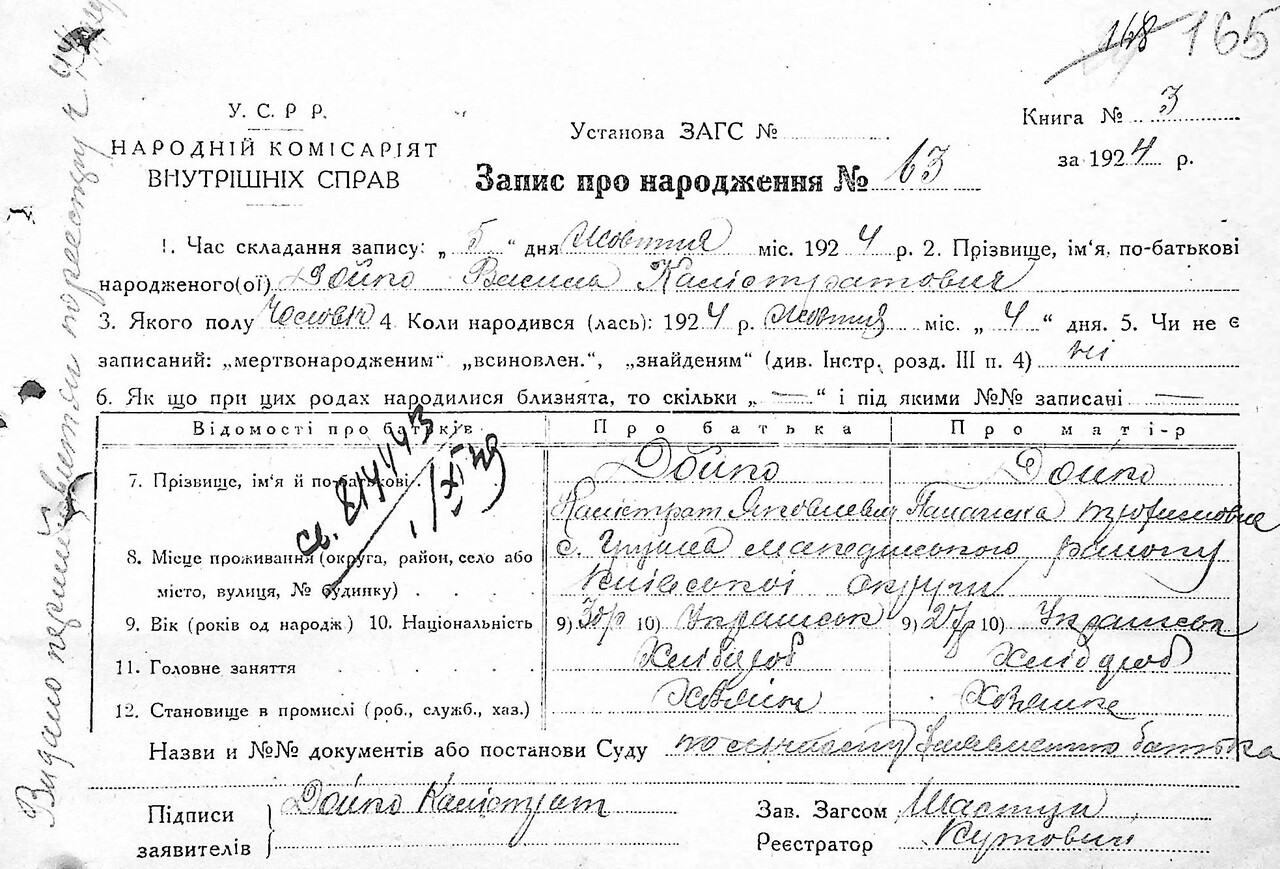 168 165
У. С. Р Р.
НАРОДНІЙ КОМІСАРІЯТ
ВНУТРІШНІХ СПРАВ
Установа ЗАГС №
Запис про народження № 63
Книга № 3
за 1924 р.
1. Час складання запису: „ 5 “ дня Жовтня міс. 1924 р. 2. Прізвище, ім'я, по-батькові
народженого(ої) Дойко Василь Калістратович
3. Якого полу Чоловік 4. Коли народився (лась): 1924 р. Жовтня міс. „ 4 “ дня. 5. Чи не є
записаний: „мертвонародженим“ „всиновлен.“, „знайденям“ (див. Інстр. розд. III п. 4) ні
6. Як що при цих родах народилися близнята, то скільки „ — “ і під якими №№ записані —
Відомості про батьків Про батька Про матір
7. Прізвище, ім'я й по-батькові Дойко Дойко
Калістрат Якович
8. Місце проживання (округа, район, село або с. району
місто, вулиця, № будинку) Київської округи
9. Вік (років од народж.) 10. Національність 9) 30р 10) Українськ 9) 27р 10) Українськ
11. Головне заняття Хлібороб Хлібороб
12. Становище в промислі (роб., служб., хаз.) Хозяїн Хозяйка
Назви и №№ документів або постанови Суду батька
Підписи Дойко Калістрат Зав. Загсом
заявителів Реєстратор Кутович
св. 814443
1/XI 49
Видано